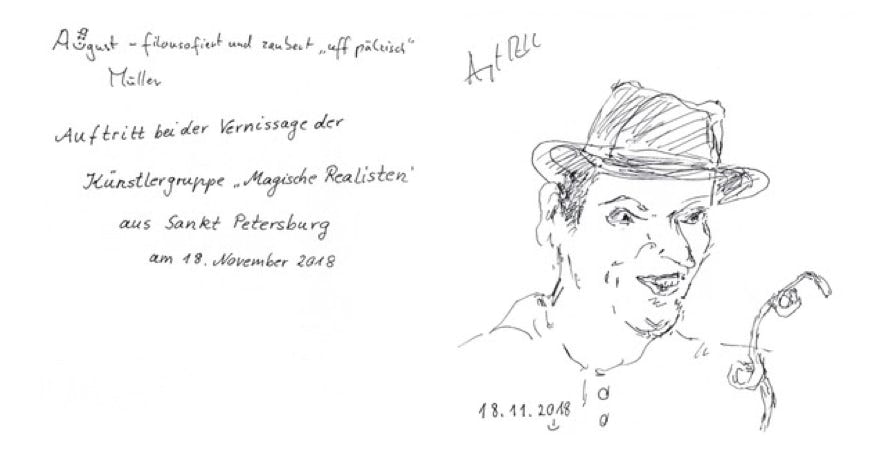 August - filousofiert und zaubert „uff pälzisch"
Müller
Auftritt bei der Vernissage der
Künstlergruppe „Magische Realisten'
aus Sankt Petersburg
am 18. November 2018
18.11.2018